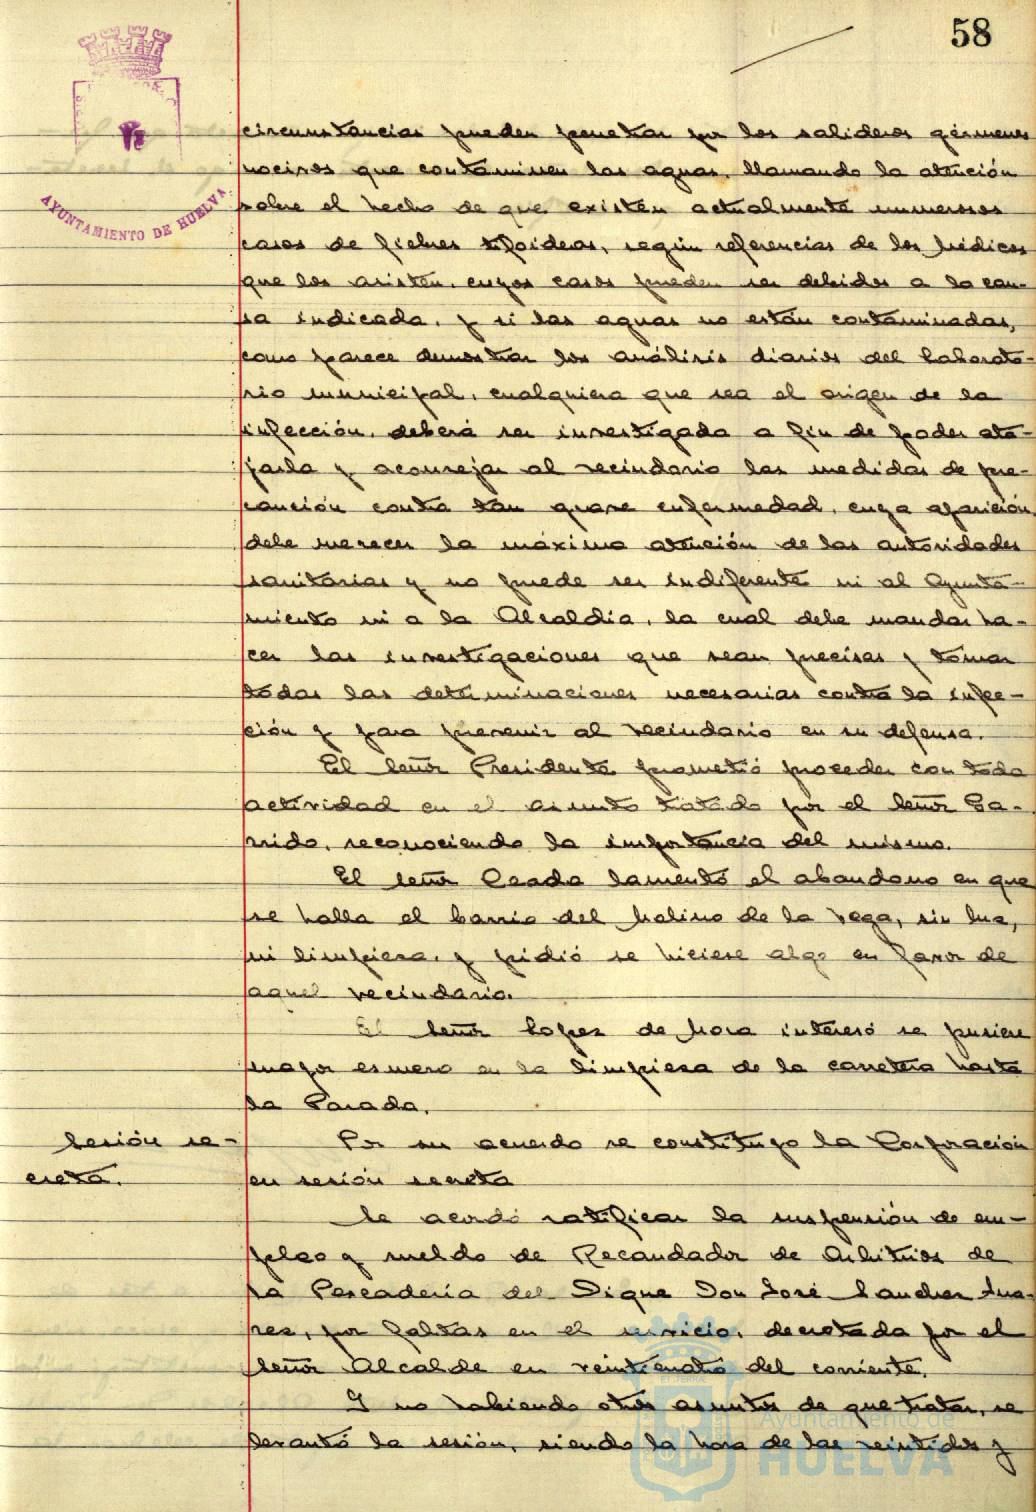 58
AYUNTAMIENTO DE HUELVA
circunstancias pueden penetrar por los salideros gérmenes
nocivos que contaminen las aguas, llamando la atención
sobre el hecho de que existen actualmente numerosos
casos de fiebres tifoideas, según referencias de los Médicos
que los asisten, cuyos casos pueden ser debidos a la cau-
sa indicada, y si las aguas no están contaminadas,
como parece demostrar los análisis diarios del Laborato-
rio municipal, cualquiera que sea el origen de la
infección, deberá ser investigada a fin de poder ata-
jarla y aconsejar al vecindario las medidas de pre-
caución contra tan grave enfermedad, cuya aparición
debe merecer la máxima atención de las autoridades
sanitarias y no puede ser indiferente ni al Ayunta-
miento ni a la Alcaldía, la cual debe mandar ha-
cer las investigaciones que sean precisas y tomar
todas las determinaciones necesarias contra la infec-
ción y para prevenir al vecindario en su defensa.
El Señor Presidente prometió proceder con toda
actividad en el asunto tratado por el Señor Ga-
rrido, reconociendo la importancia del mismo.
El señor Ceada lamentó el abandono en que
se halla el barrio del Molino de la Vega, sin luz,
ni limpieza, y pidió se hiciese algo en favor de
aquel vecindario.
El Señor López de Mora interesó se pusiere
mayor esmero en la limpieza de la carretera hasta
la Parada.
Sesión se-
creta.
Por su acuerdo se constituyo la Corporación
en sesión secreta
Se acordó ratificar la suspensión de em-
pleo y sueldo de Recaudador de Arbitrios de
la Pescadería del Dique Don José Sanchez Sua-
rez, por faltas en el servicio, decretada por el
Señor Alcalde en veinticuatro del corriente.
Y no habiendo otros asuntos de que tratar, se
levantó la sesión, siendo la hora de las veintidós y
Ayuntamiento de
HUELVA